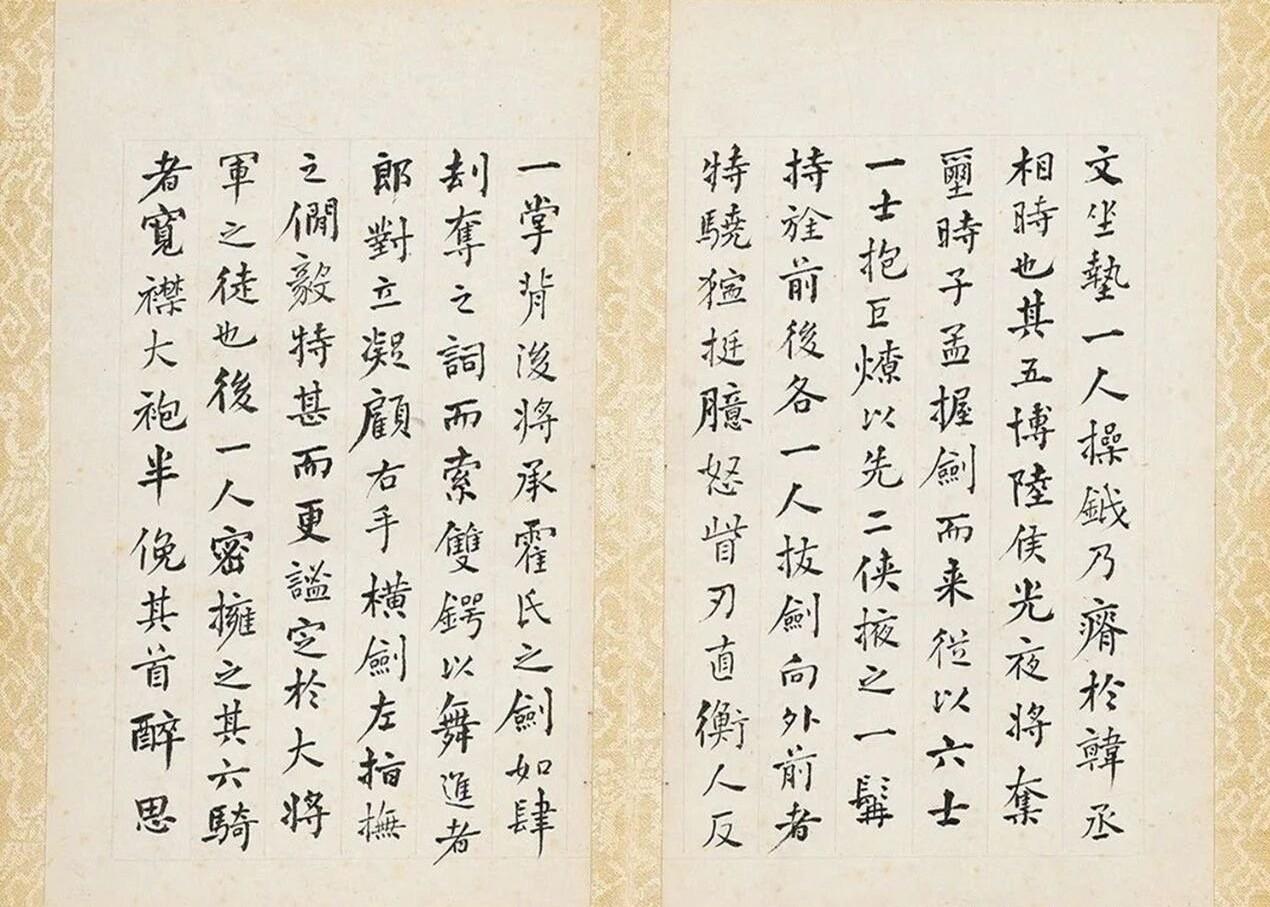 文坐墊一人操鉞乃瘠於韓丞
相時也其五博陸侯光夜將奪
璽時子孟握劍而来從以六士
一士抱巨燎以先二侠掖之一髯
持旌前後各一人抜劍向外前者
特驍猛挺臆怒眥刃直衡人反
一掌背後將承霍氏之劍如肆
刦奪之詞而索雙鍔以舞進者
郎對立凝顧右手横劍左指撫
之僩毅特甚而更謐定於大將
軍之徒也後一人密擁之其六騎
者寛襟大袍半俛其首醉思